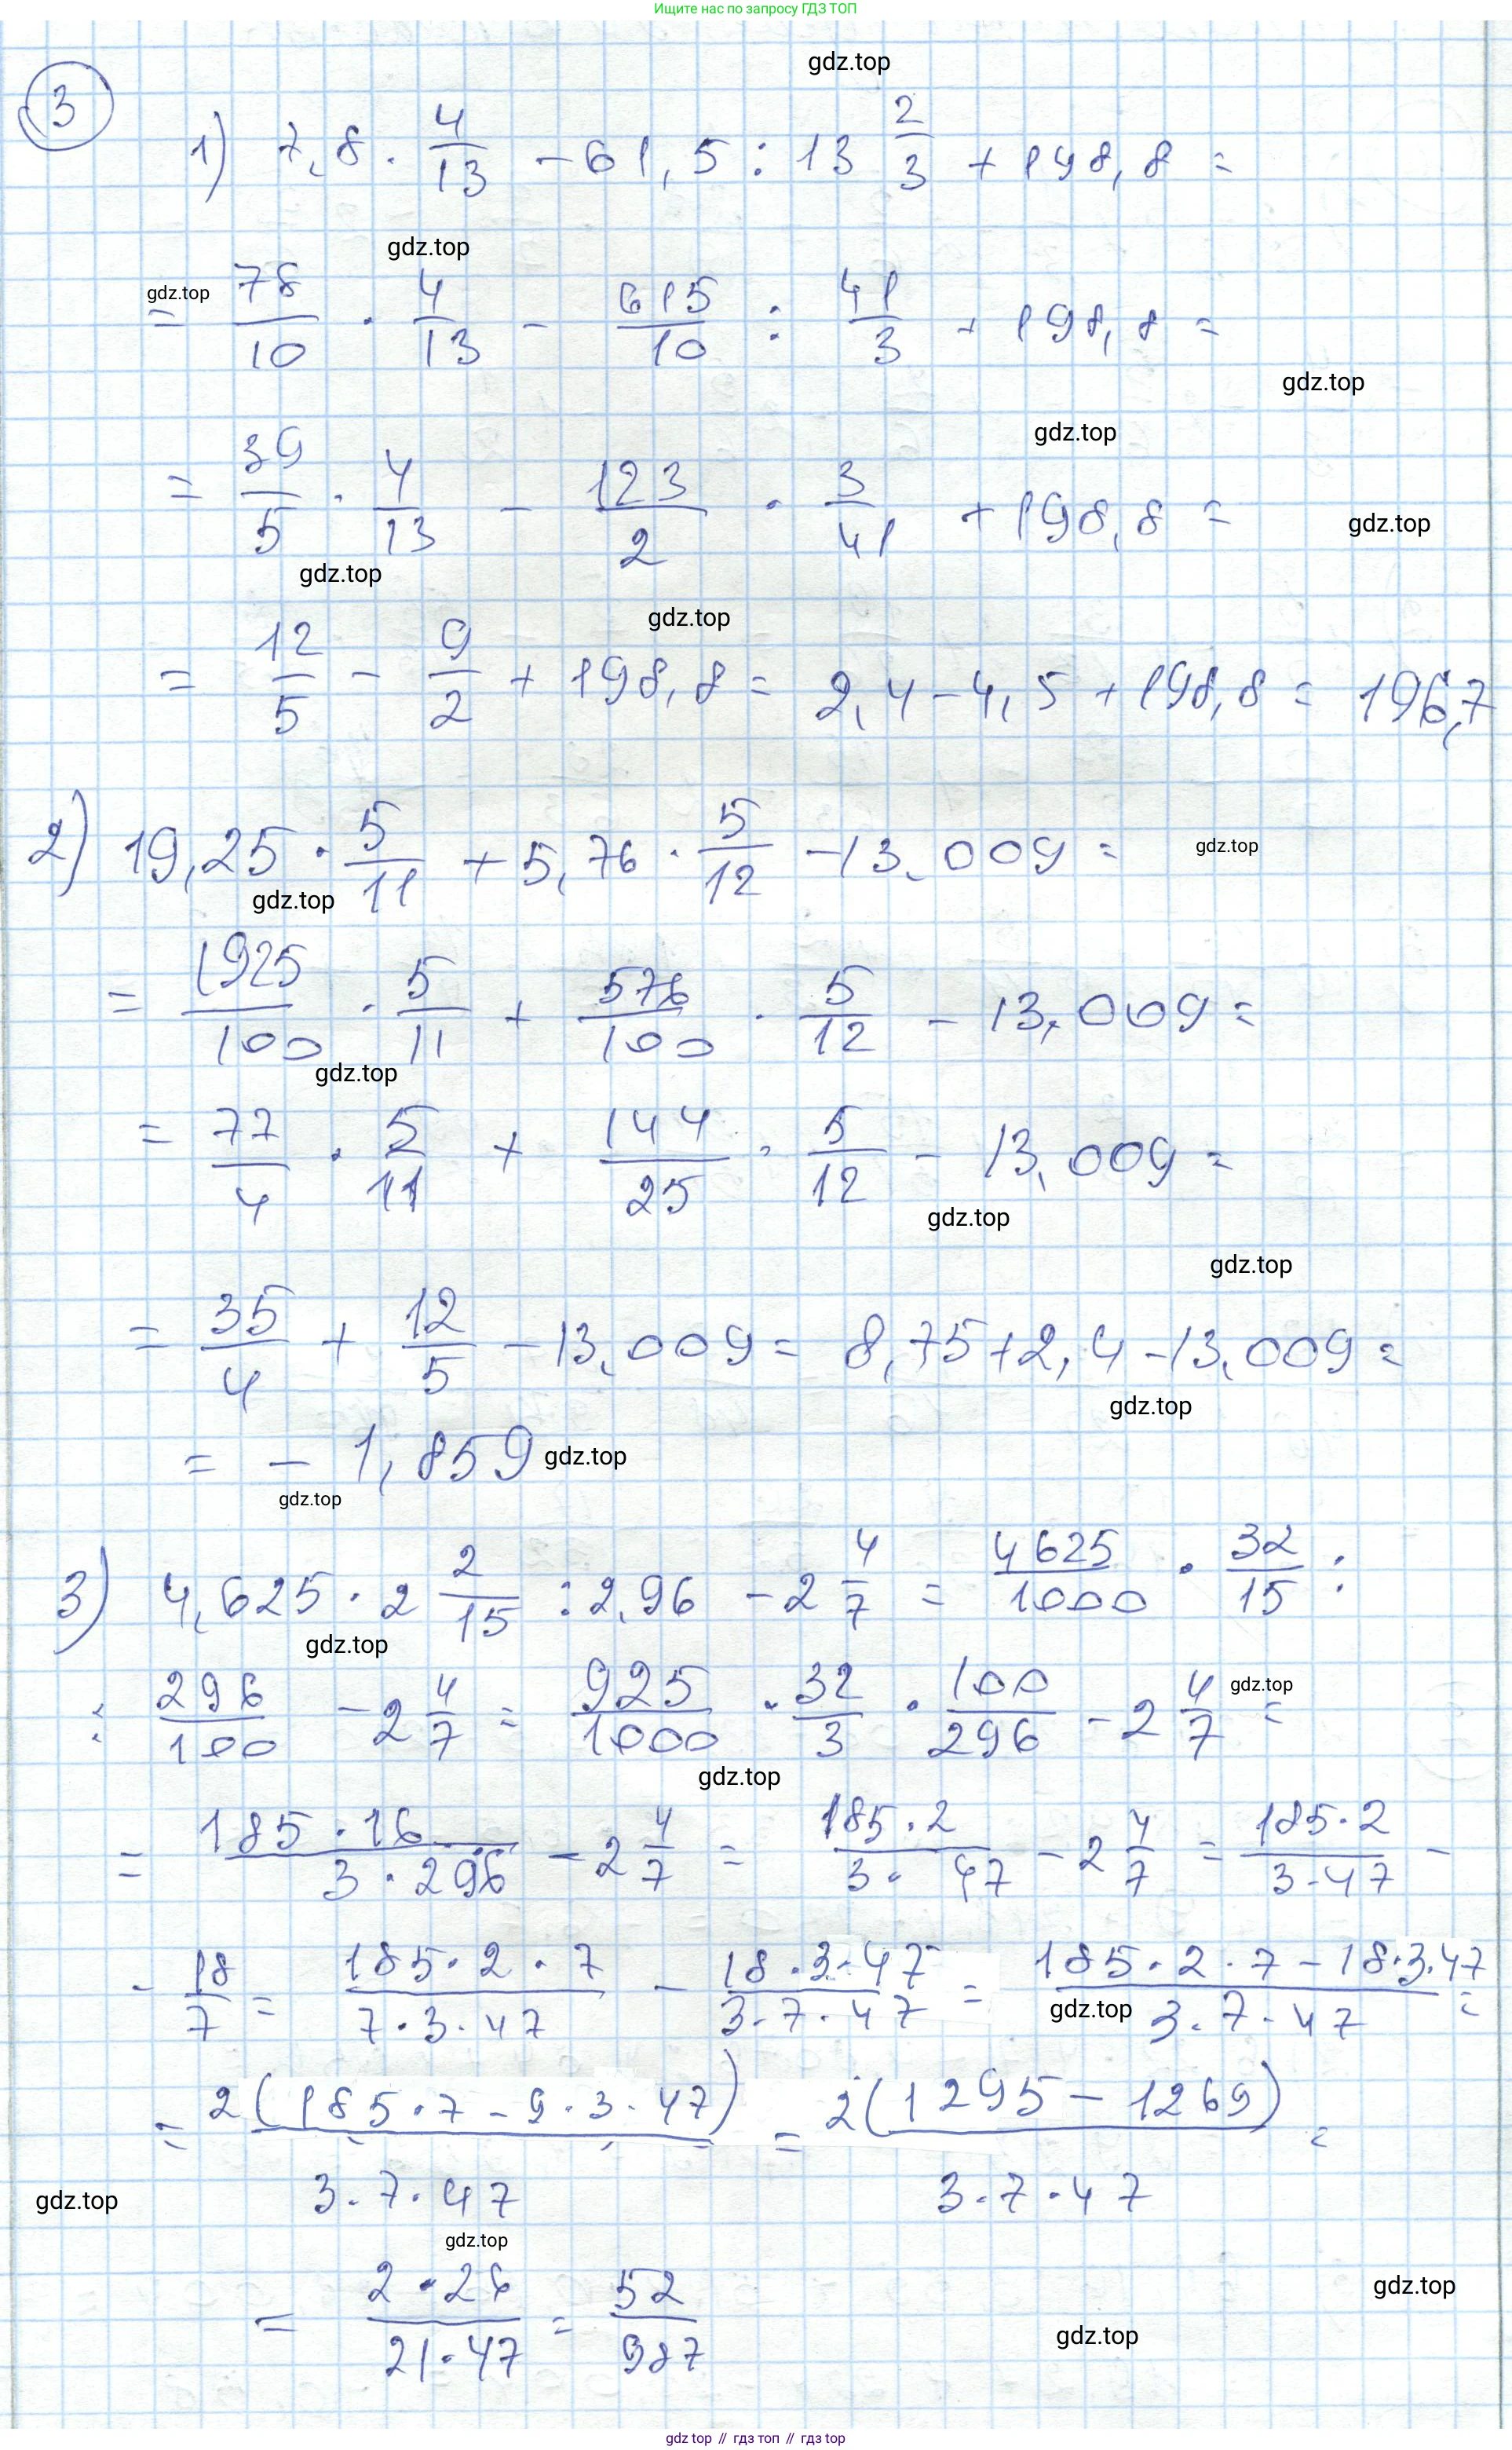 Ищите нас по запросу ГДЗ ТОП
gdz.top
3
1) 7,8 · 4/13 - 61,5 : 13 2/3 + 198,8 =
gdz.top
gdz.top
= 78/10 · 4/13 - 615/10 : 41/3 + 198,8 =
gdz.top
gdz.top
= 39/5 · 4/13 - 123/2 · 3/41 + 198,8 =
gdz.top
gdz.top
gdz.top
= 12/5 - 9/2 + 198,8 = 2,4 - 4,5 + 198,8 = 196,7
2) 19,25 · 5/11 + 5,76 · 5/12 - 13,009 =
gdz.top
gdz.top
= 1925/100 · 5/11 + 576/100 · 5/12 - 13,009 =
gdz.top
= 77/4 · 5/11 + 144/25 · 5/12 - 13,009 =
gdz.top
gdz.top
= 35/4 + 12/5 - 13,009 = 8,75 + 2,4 - 13,009 =
gdz.top
= - 1,859
gdz.top
gdz.top
3) 4,625 · 2 2/15 : 2,96 - 2 4/7 = 4625/1000 · 32/15 :
gdz.top
: 296/100 - 2 4/7 = 925/1000 · 32/3 · 100/296 - 2 4/7 =
gdz.top
gdz.top
= 185 · 16/3 · 296 - 2 4/7 = 185 · 2/3 · 47 - 2 4/7 = 185 · 2/3 · 47 -
- 18/7 = 185 · 2 · 7/7 · 3 · 47 - 18 · 3 · 47/3 · 7 · 47 = 185 · 2 · 7 - 18 · 3 · 47/3 · 7 · 47 =
gdz.top
= 2(185 · 7 - 9 · 3 · 47)/3 · 7 · 47 = 2(1295 - 1269)/3 · 7 · 47 =
gdz.top
gdz.top
= 2 · 26/21 · 47 = 52/987
gdz.top
gdz.top
gdz top // гдз топ // гдз top